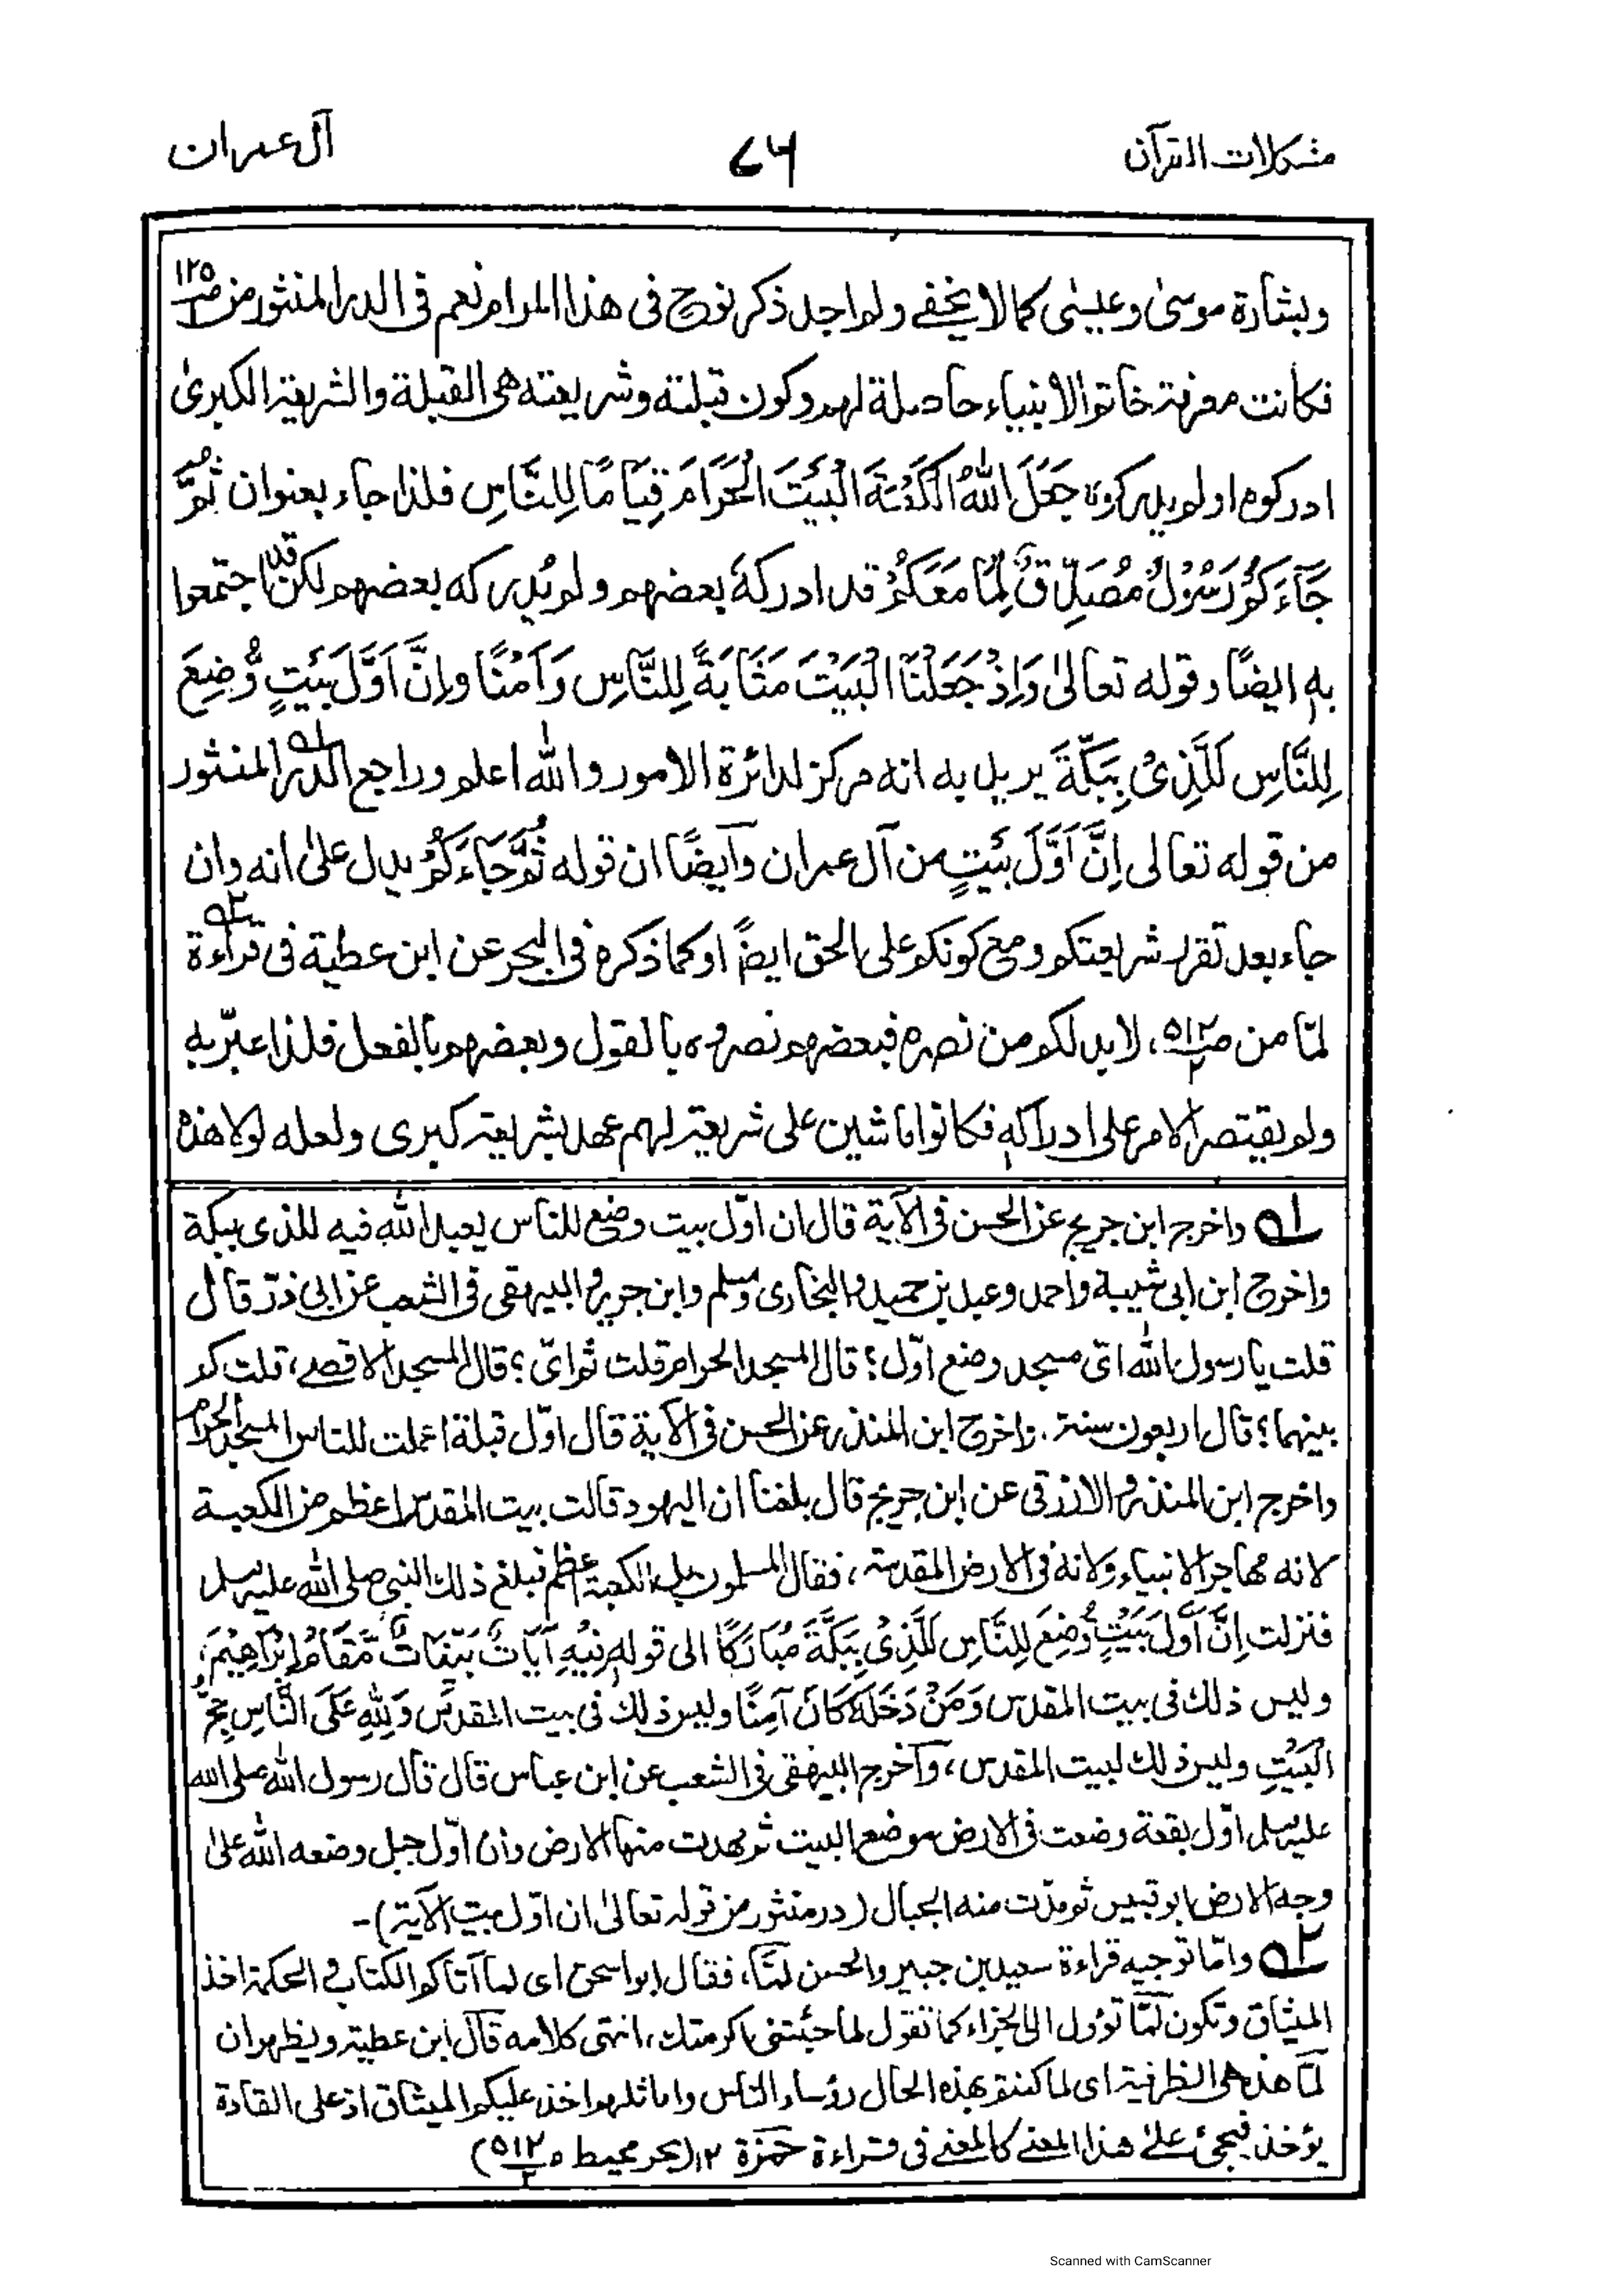 مشكلات القرآن
٧٦
آل عمران
وبشارة موسىٰ وعيسٰى كما لا يخفے ولم اجد ذكر نوح فى هذا المرام نعم فى الدر المنثور من ص ١٢٥/١
فكانت معرفة خاتم الانبياء حاصلة لهم وكون قبلته وشريعته هى القبلة والشريعة الكبرىٰ
ادركوه او لم يدركوه جَعَلَ اللّٰهُ الْكَعْبَةَ الْبَيْتَ الْحَرَامَ قِيَامًا لِلنَّاسِ فلذا جاء بعنوان ثُمَّ
جَآءَكُمْ رَسُوْلٌ مُصَدِّقٌ لِّمَا مَعَكُمْ قد ادركهٗ بعضهم ولم يُدركه بعضهم لكن قد اجتمعوا
به ايضًا وقوله تعالىٰ وَاِذْ جَعَلْنَا الْبَيْتَ مَثَابَةً لِلنَّاسِ وَاَمْنًا وإنَّ اَوَّلَ بَيْتٍ وُّضِعَ
لِلنَّاسِ لَلَّذِىْ بِبَكَّةَ يريد به انه مركز لدائرة الامور واللّٰه اعلم وراجع الدر المنثور ؎١
من قوله تعالى اِنَّ اَوَّلَ بَيْتٍ من آل عمران وايضًا ان قوله ثُمَّ جَاءَكُمْ يدل علىٰ انه وان
جاء بعد تقرر شريعتكم ومع كونكم على الحق ايضً او كما ذكره فى البحر عن ابن عطية فى قراءة ؎٢
لمّا من ص ٥١٢/٢، لا بد لكم من نصره فبعضهم نصروه بالقول وبعضهم بالفعل فلذا عبّر به
ولم يقتصر الامر على ادراكه فكانوا ماشين على شريعة لهم عهد بشريعة كبرى ولعله لولا هذه
؎١ واخرج ابن جرير عن الحسن فى الآية قال ان اوّل بيت وضع للناس يعبد اللّٰه فيه للذى ببكة
واخرج ابن ابى شيبة واحمد وعبد بن حميد والبخارى ومسلم وابن جرير والبيهقى فى الشعب عن ابى ذرّ قال
قلت يا رسول اللّٰه اىّ مسجد وضع اوّل؟ قال المسجد الحرام قلت ثم اىّ؟ قال المسجد الاقصے، قلت كم
بينهما؟ قال اربعون سنة. واخرج ابن المنذر عن الحسن فى الآية قال اوّل قبلة اعملت للناس المسجد الحرام
واخرج ابن المنذر والازرقى عن ابن جريج قال بلغنا ان اليهود قالت بيت المقدس اعظم من الكعبة
لانه مهاجر الانبياء ولانه فى الارض المقدسة، فقال المسلمون بل الكعبة اعظم فبلغ ذلك النبى صلى اللّٰه عليه وسلم
فنزلت اِنَّ اَوَّلَ بَيْتٍ وُّضِعَ لِلنَّاسِ لَلَّذِىْ بِبَكَّةَ مُبَارَكًا الى قوله فِيْهِ آيَاتٌ بَيِّنَاتٌ مَّقَامُ اِبْرَاهِيْمَ،
وليس ذلك فى بيت المقدس وَمَنْ دَخَلَهٗ كَانَ آمِنًا وليس ذلك فى بيت المقدس وَلِلّٰهِ عَلَى النَّاسِ حِجُّ
الْبَيْتِ وليس ذلك لبيت المقدس، وآخرج البيهقى فى الشعب عن ابن عباس قال قال رسول اللّٰه صلى اللّٰه
عليه وسلم اوّل بقعة وضعت فى الارض موضع البيت ثم مهدت منها الارض وان اوّل جبل وضعه اللّٰه علىٰ
وجه الارض ابو قبيس ثم مدّت منه الجبال (در منثور من قوله تعالىٰ ان اوّل بيت الآية)-
؎٢ وامّا توجيه قراءة سعيد بن جبير والحسن لمّا، فقال ابو اسحق اى لما آتاكم الكتاب والحكمة اخذ
الميثاق وتكون لمّا تؤول الى الجزاء كما تقول لما جئتنى اكرمتك، انتهى كلامه قال ابن عطية ويظهر ان
لمّا هذه هى الظرفية اى لما كنتم بهذه الحال رؤساء الناس واماثلهم اخذ عليكم الميثاق اذ على القادة
يؤخذ فيجئ علےٰ هذا المعنے كالمعنے فى قراءة حمزة ١٢ (بحر محيط ص ٥١٢/٢)
Scanned with CamScanner